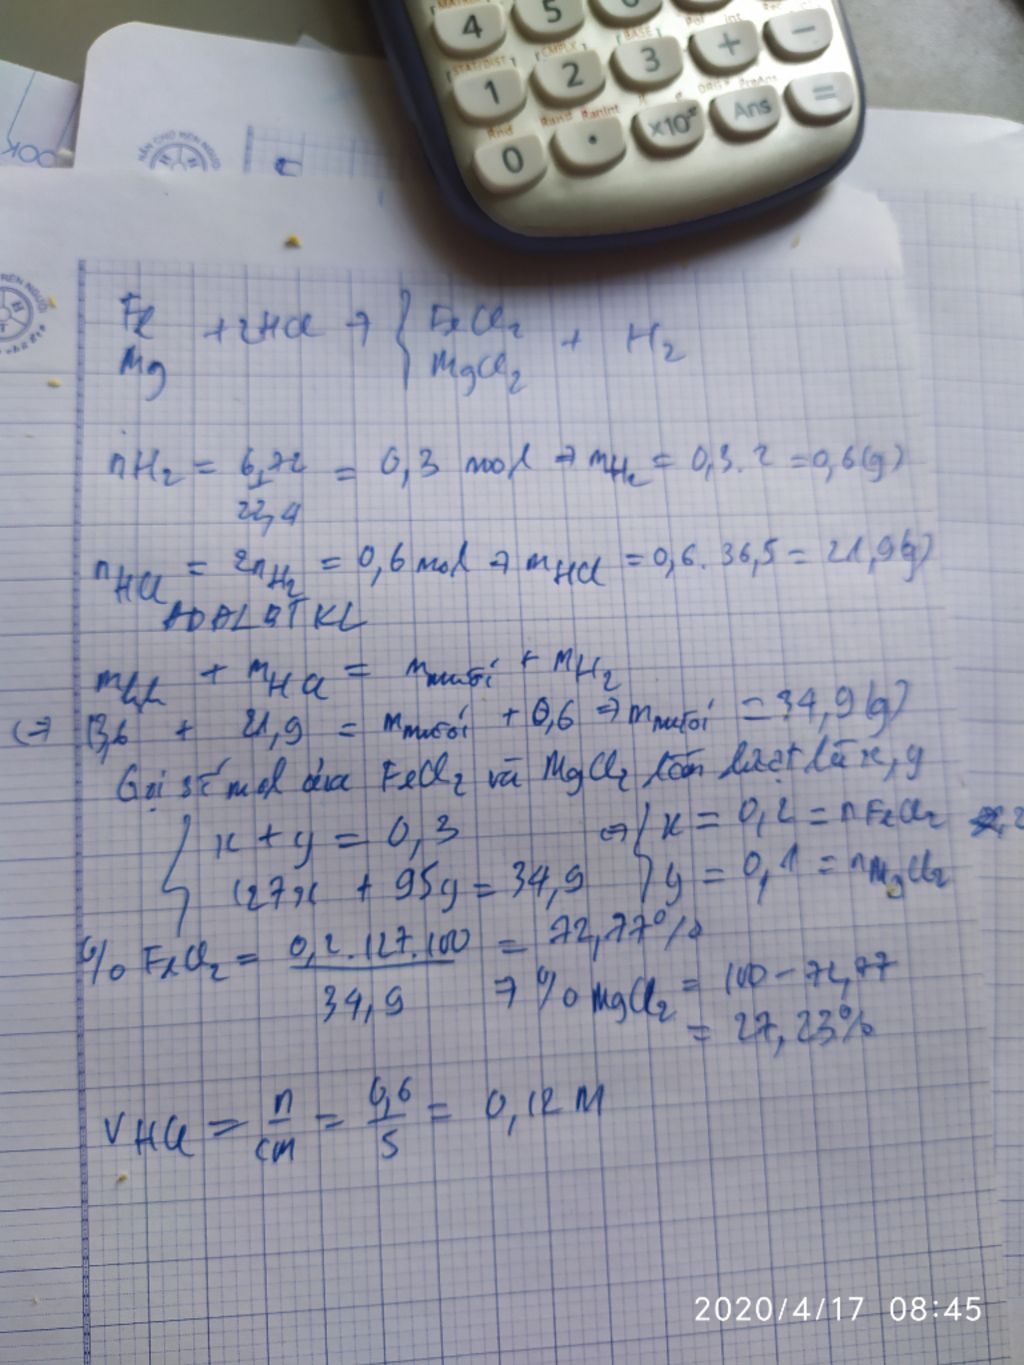 4 5 6
1 2 3 + −
0 · ×10ˣ Ans =
Rnd Ran# RanInt
Fe
Mg
+ 2HCl → { FeCl2
MgCl2
+ H2
nH2 = 6,72 / 22,4 = 0,3 mol → mH2 = 0,3.2 = 0,6(g)
nHCl = 2nH2 = 0,6 mol → mHCl = 0,6.36,5 = 21,9(g)
ADĐLBTKL
mhh + mHCl = mmuối + mH2
(→ 13,6 + 21,9 = mmuối + 0,6 → mmuối = 34,9(g)
Gọi số mol của FeCl2 và MgCl2 lần lượt là x,y
{ x + y = 0,3
127x + 95y = 34,9
⇔ { x = 0,2 = nFeCl2
y = 0,1 = nMgCl2
% FeCl2 = 0,2.127.100 / 34,9 = 72,77%
→ % MgCl2 = 100 - 72,77
= 27,23%
VHCl = n / CM = 0,6 / 5 = 0,12 M
2020/4/17 08:45